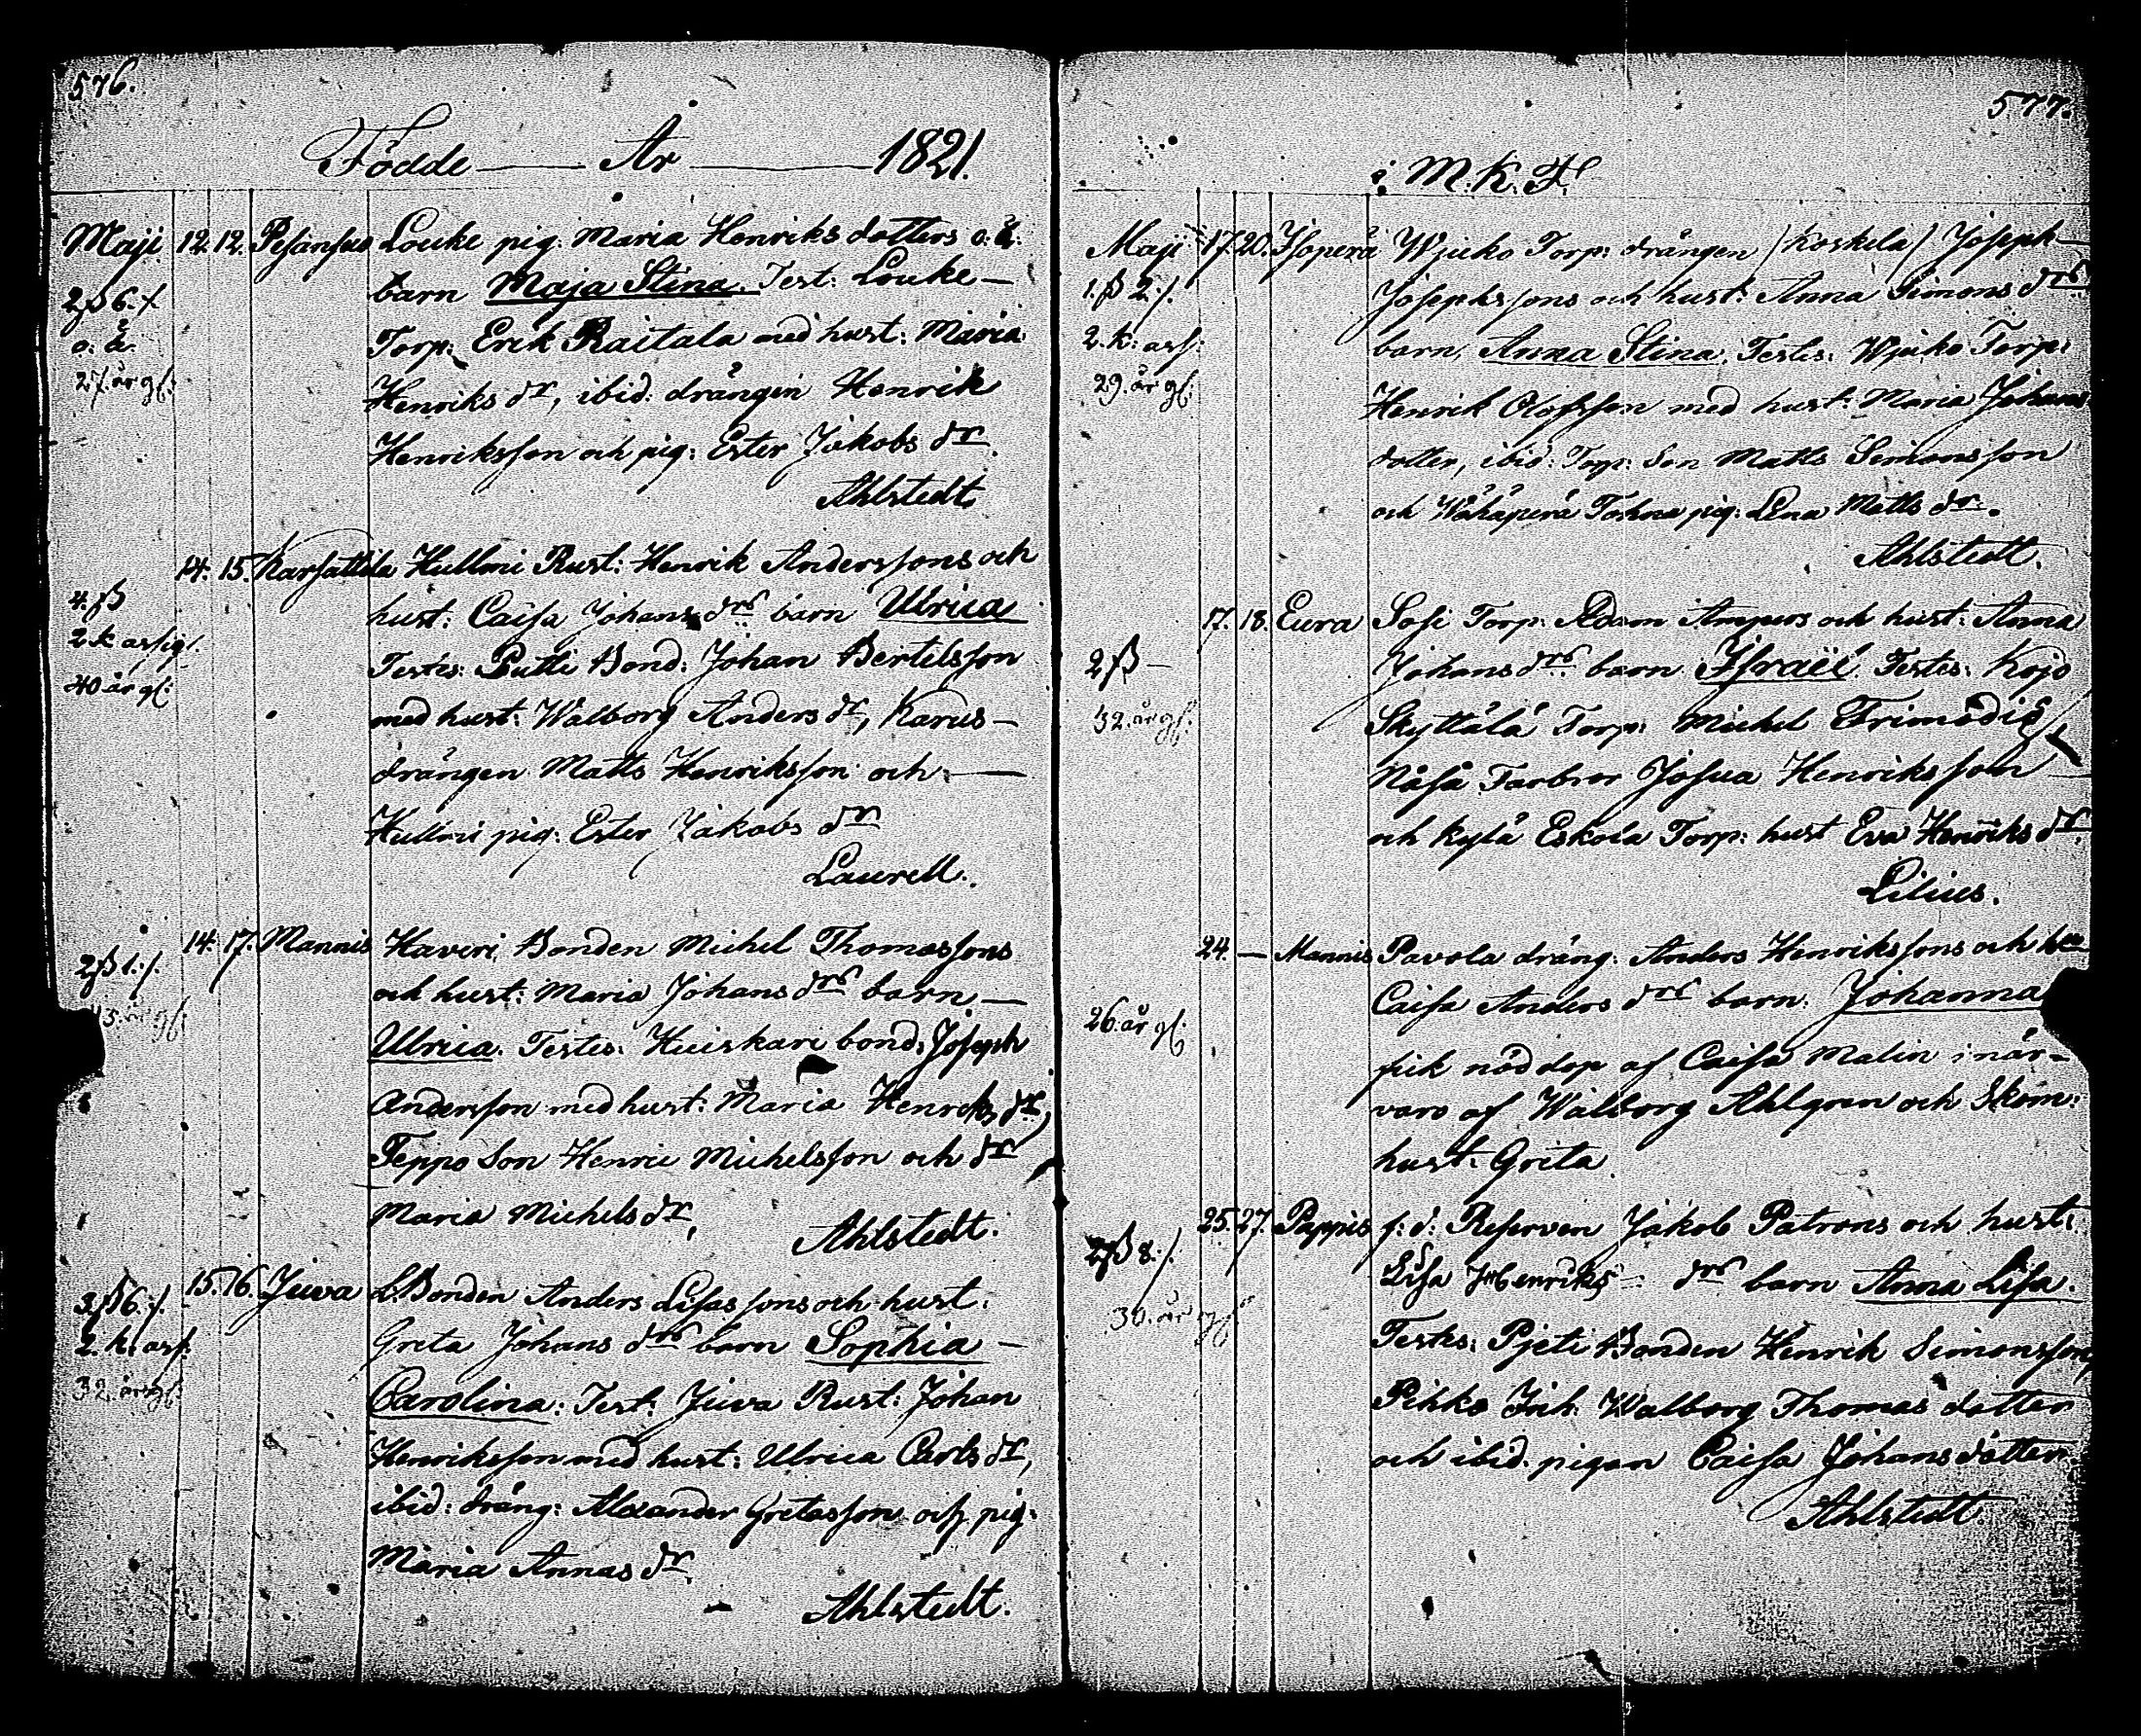 576.
Födde — År — 1821.
Maji. 12. 12. Pesänsuo Louke pig: Maria Henriks dotters o: ä:
2 ß 6. barn Maja Stina. Test: Louke —
o. ä. Torp: Erik Raitala med hust: Maria
27. år gl: Henriks dr, ibid: drängen Henrik
Henriksson och pig: Ester Jakobs dr.
Ahlstedt
14. 15. Karsattila Hullmi Rust: Henrik Anderssons och
4. ß hust: Caisa Johans drs barn Ulrica
2 k assig. Testes: Putti Bond: Johan Bertelsson
40 år gl: med hust: Walborg Anders dr, Karus —
drängen Matts Henriksson och —
Hullmi pig: Ester Jakobs dr
Laurell.
14. 17. Mannis Haveri Bonden Michel Thomassons
2 ß 1. och hust: Maria Johans drs barn —
Ulrica. Testes: Huiskari bond: Joseph
Andersson med hust: Maria Henriks dr,
Teppo Son Henric Michelsson och dr
Maria Michels dr,
Ahlstedt.
15. 16. Juva L. Bonden Anders Lisassons och hust:
3 ß 6. Greta Johans drs barn Sophia —
2. k. ass: Carolina: Test: Juva Rust: Johan
32. år gl: Henriksson med hust: Ulrica Carls dr,
ibid: dräng: Alexander Gretasson och pig:
Maria Annas dr.
Ahlstedt.
577.
i M. K. F.
Maji 17. 20. Isoperä Wjuko Torp: drängen / Koskela / Joseph —
1. ß 2. Josephssons och hust: Anna Simons drs
2. k: ass: barn, Anna Stina. Testes: Wjuko Torp:
29. år gl: Henrik Olofsson med hust: Maria Johans
dotter, ibid: Torp: Son Matts Simonsson
och Wähäperä Tohna pig: Lena Matts dr.
Ahlstedt.
17. 18. Eura Sosi Torp: Adam Ampurs och hust: Anna
2 ß — Johans drs barn Israël. Testes: Kojo
32. år gl: Skyttälä Torp: Michel Frimodig,
Nåså Farbror Josua Henriksson
och Kylä Eskola Torp: hust Eva Henriks dr.
Lilius.
24. — Mannis Pavola dräng: Anders Henrikssons och
Caisa Anders drs barn. Johanna
26. år gl: fick nöddop af Caisa Malin i när-
varo af Walborg Ahlgren och Skom:
hust: Greta.
25. 27. Pappis f: d: Reserven Jakob Patrons och hust:
2 ß 8. Lisa Henriks — drs barn Anna Lisa.
30. år gl: Testes: Pjeti Bonden Henrik Simonsson,
Pihko Inh: Walborg Thomas dotter
och ibid. pigan Caisa Johans dotter.
Ahlstedt